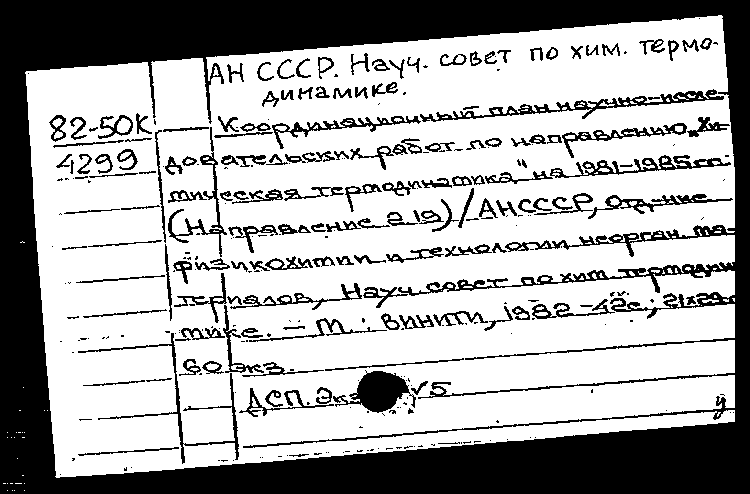 АН СССР. Науч. совет по хим. термо-
динамике.
82-50К Координационный план научно-иссле-
4299 довательских работ по направлению „Хи-
мическая термодинамика" на 1981-1985 гг.
(Направление 2.19)/АН СССР, Отд-ние
физикохимии и технологии неорган. ма-
териалов, Науч. совет по хим. термодина
мике. – М.: ВИНИТИ, 1982 - 42с.; 21х29
60 экз.
ДСП. Экз 5
у